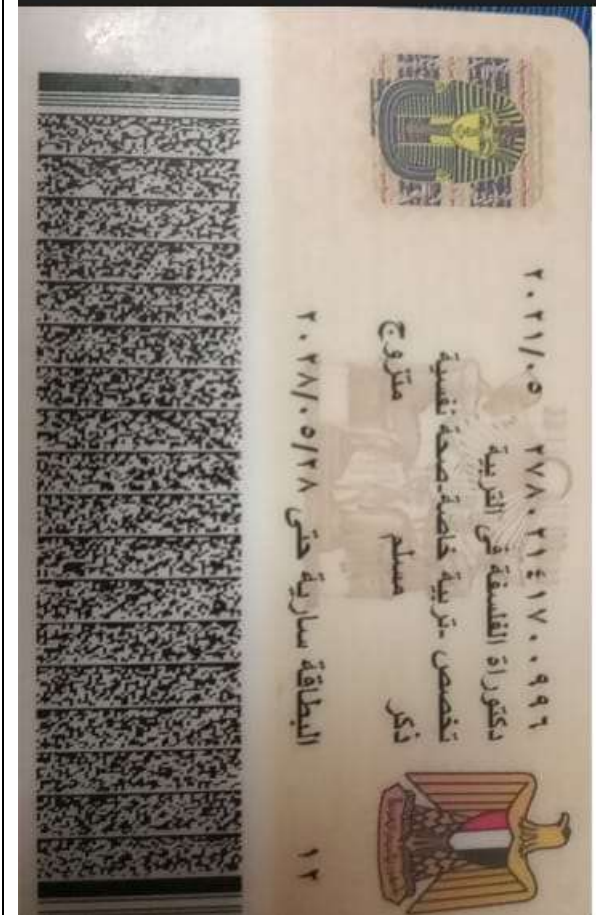 ٢٠٢١/٠٥ ٢٧٨٠٢١٤١٧٠٠٩٩٦
دكتوراة الفلسفة فى التربية
تخصص -تربية خاصة-صحة نفسية
ذكر مسلم متزوج
البطاقة سارية حتى ٢٠٢٨/٠٥/٢٨
١٢